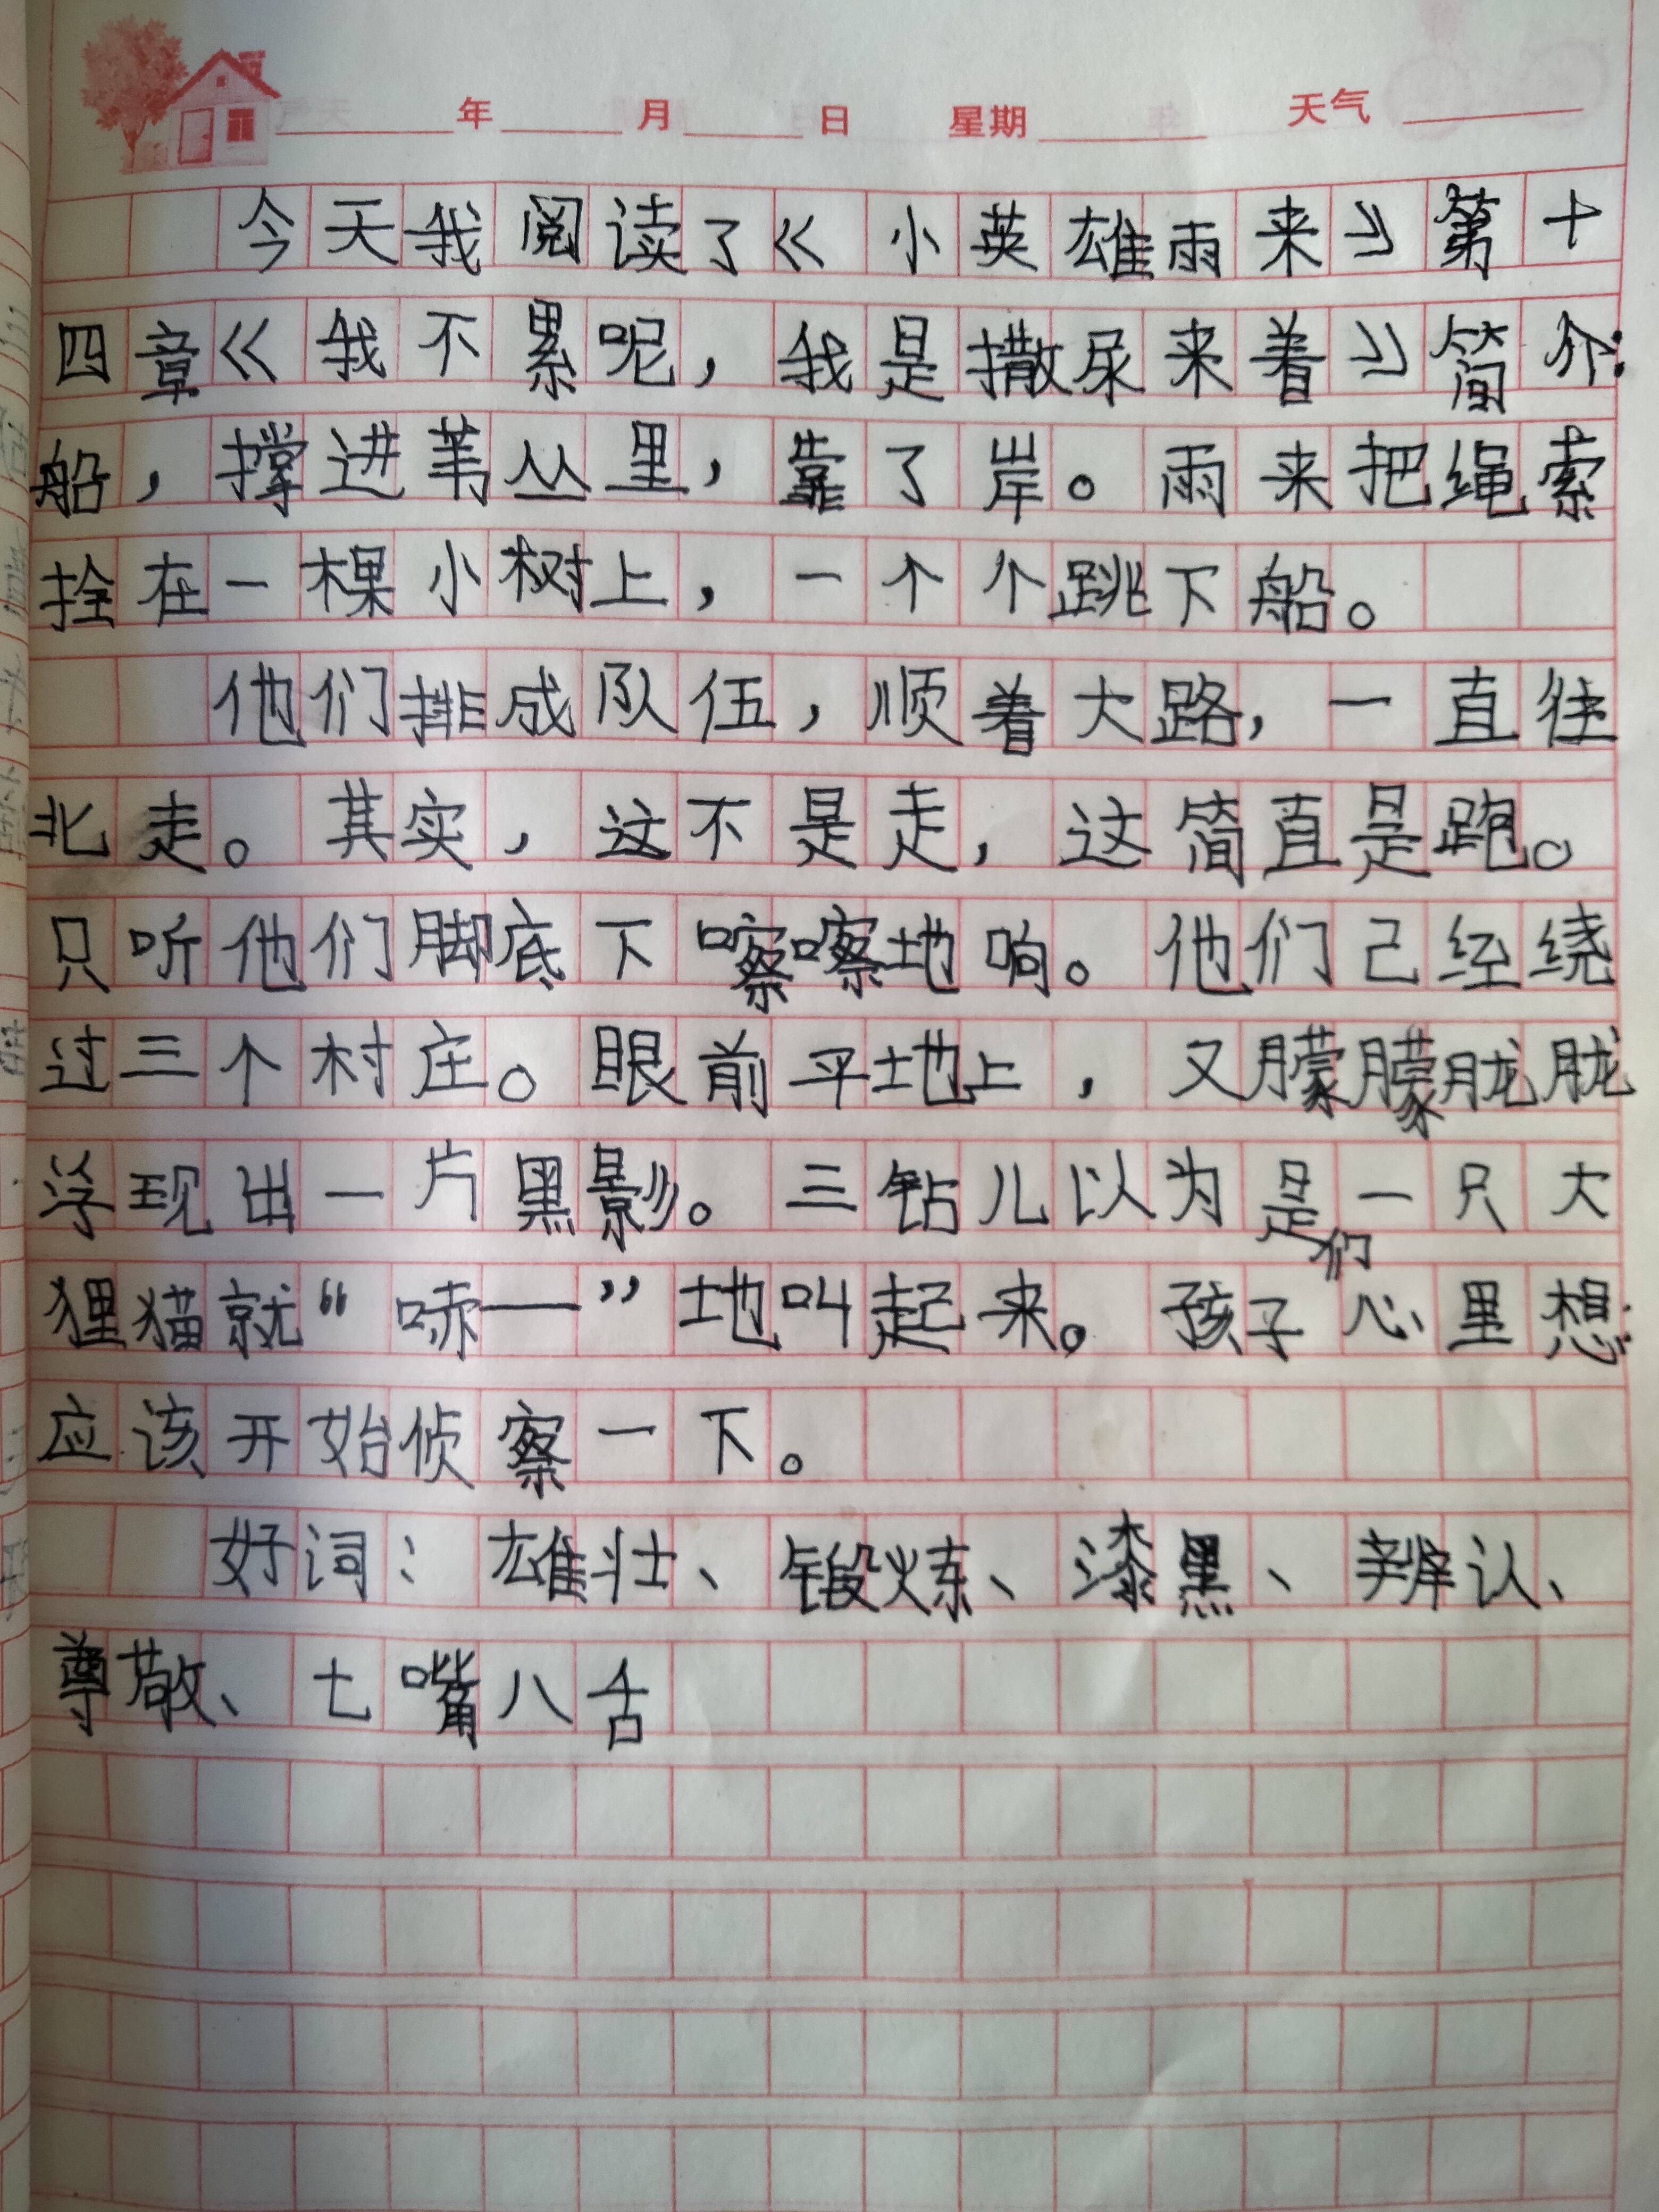 年 月 日 星期 天气
今天我阅读了《小英雄雨来》第十
四章《我不累呢，我是撒尿来着》简介：
船，撑进苇丛里，靠了岸。雨来把绳索
拴在一棵小树上，一个个跳下船。
他们排成队伍，顺着大路，一直往
北走。其实，这不是走，这简直是跑。
只听他们脚底下嚓嚓地响。他们己经绕
过三个村庄。眼前平地上，又朦朦胧胧
浮现出一片黑影。三钻儿以为是一只大
狸猫就“哧——”地叫起来。孩子们心里想：
应该开始侦察一下。
好词：雄壮、锻炼、漆黑、辨认、
尊敬、七嘴八舌